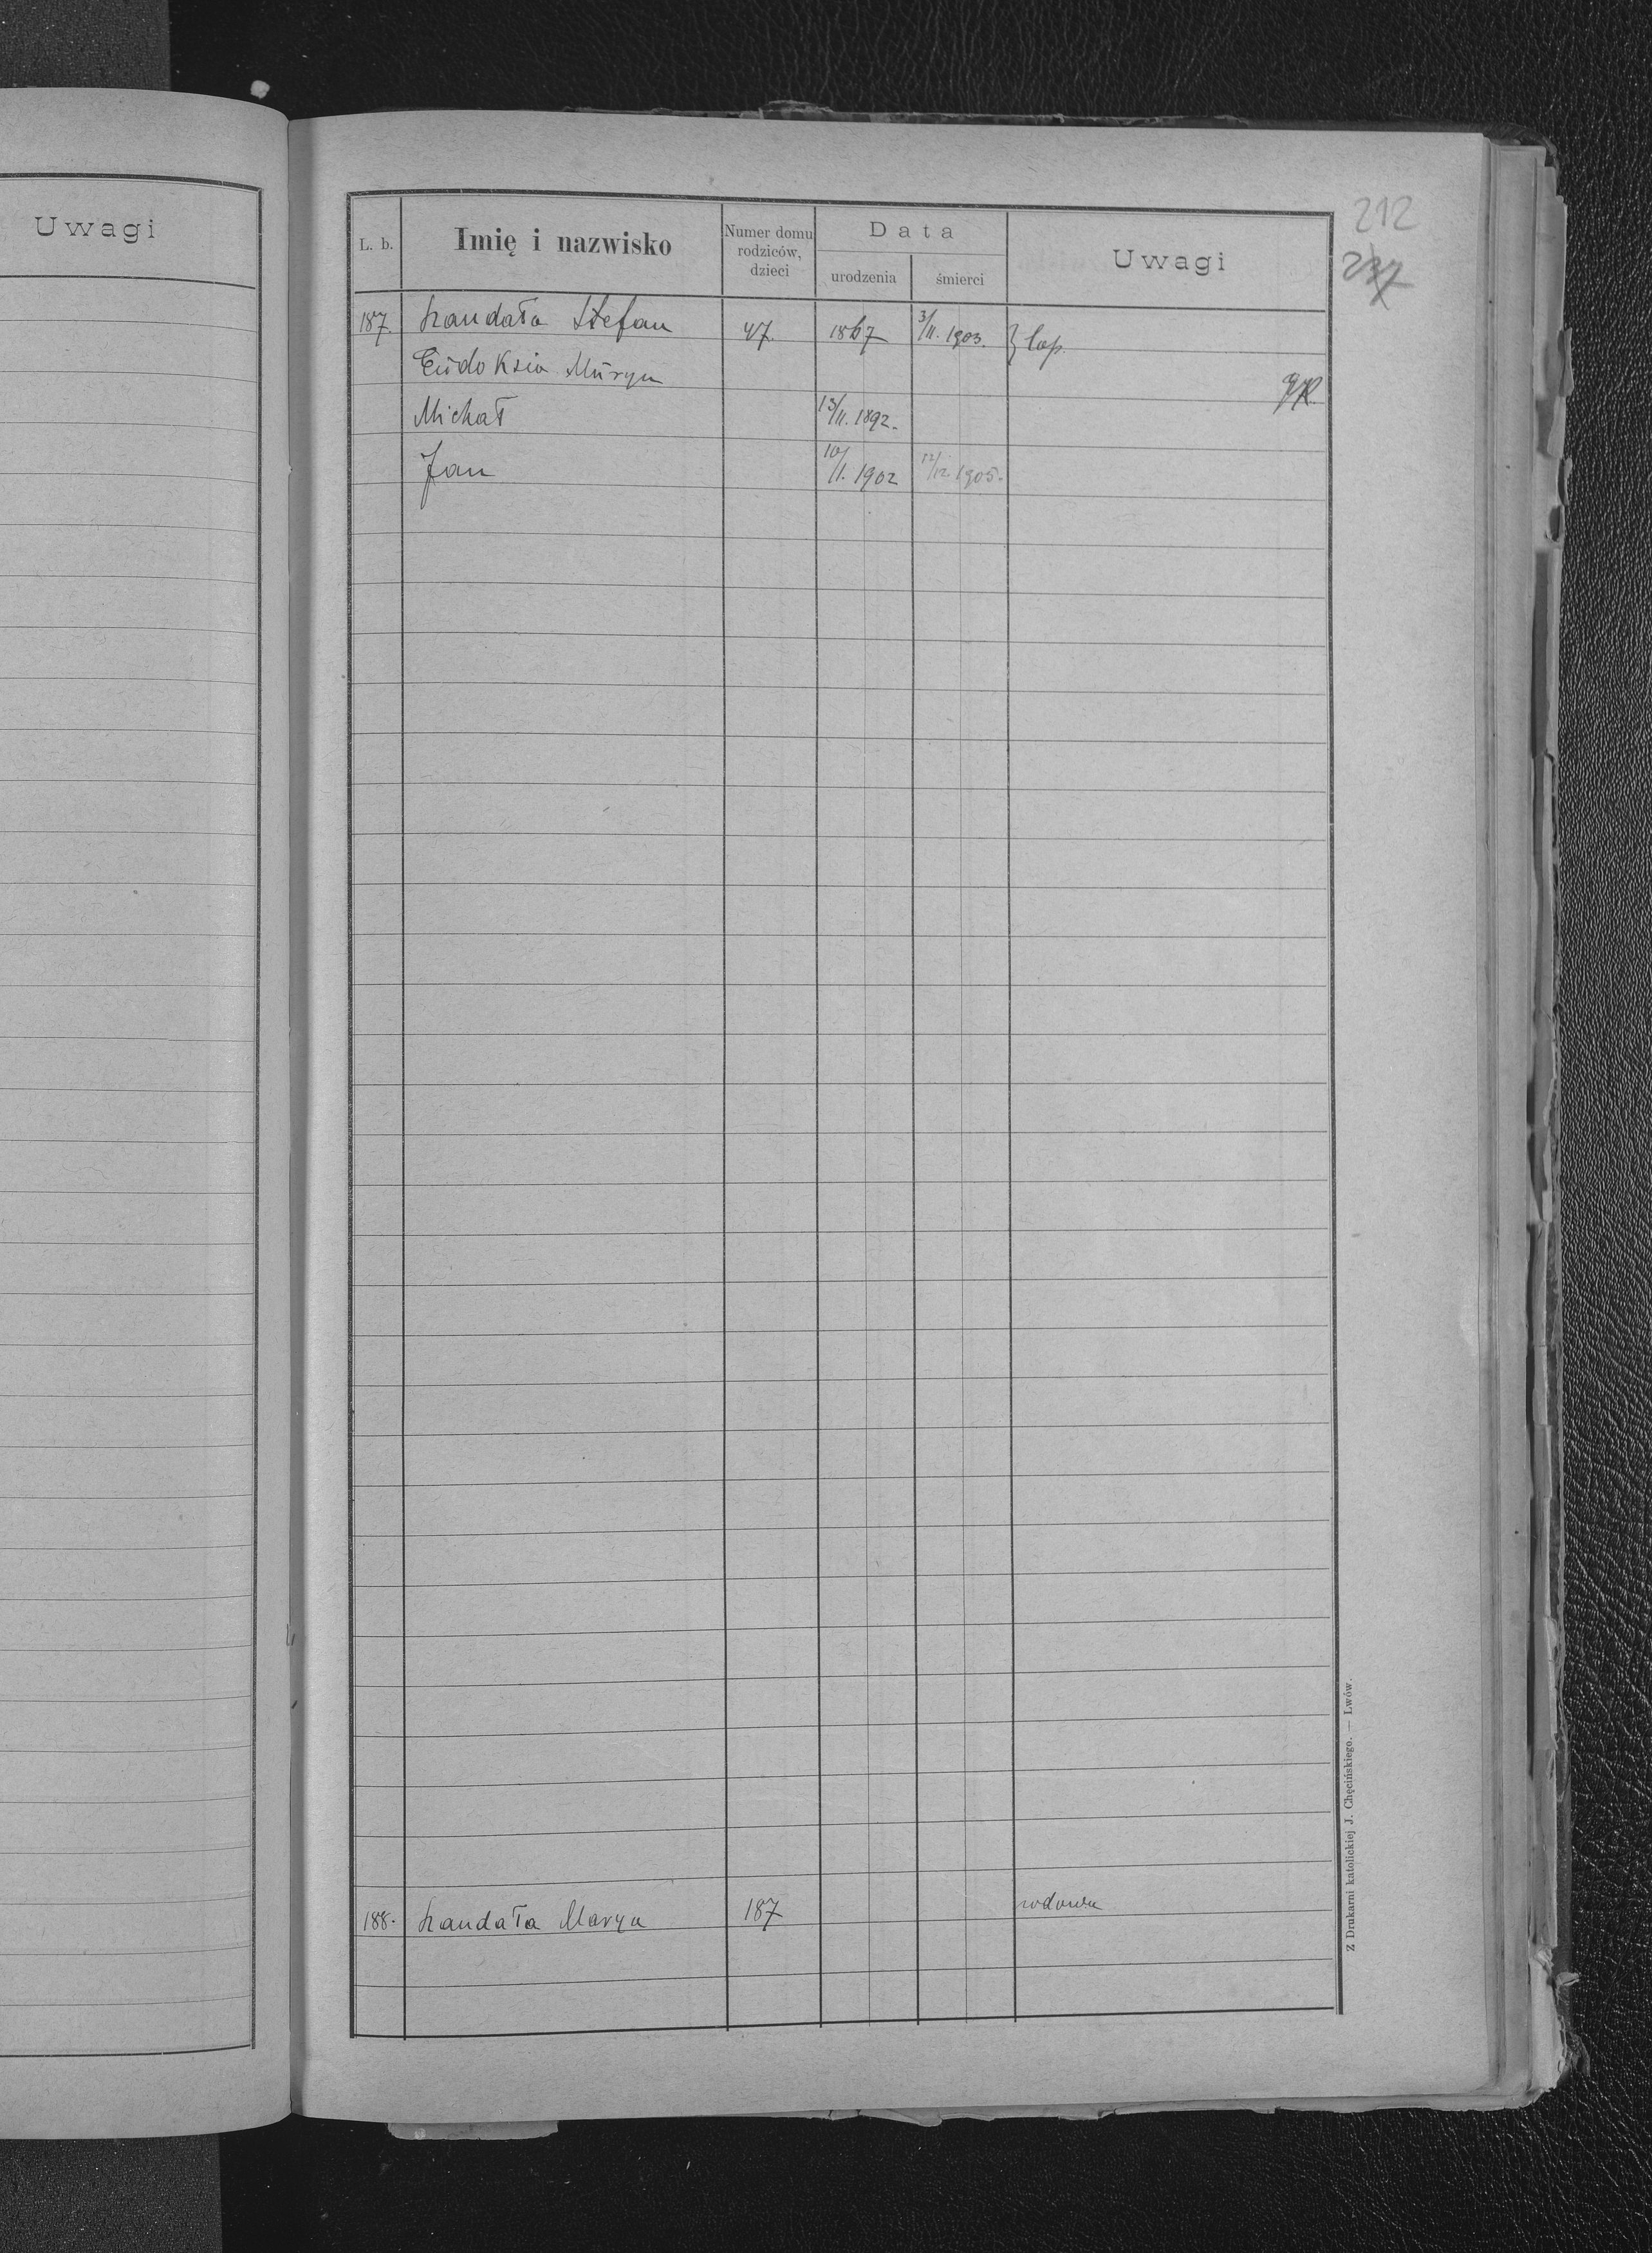 Uwagi
212
237
L. b.
Imię i nazwisko
Numer domu rodziców, dzieci
Data
urodzenia
śmierci
Uwagi
187. Handała Stefan 47. 1867 3/II. 1903. } łac.
Eudoksia Muryn
Michał 13/II. 1892.
Jan 10/I. 1902 12/12. 1905.
188. Handała Marya 187 wdowa
Z Drukarni katolickiej J. Chęcińskiego. — Lwów.